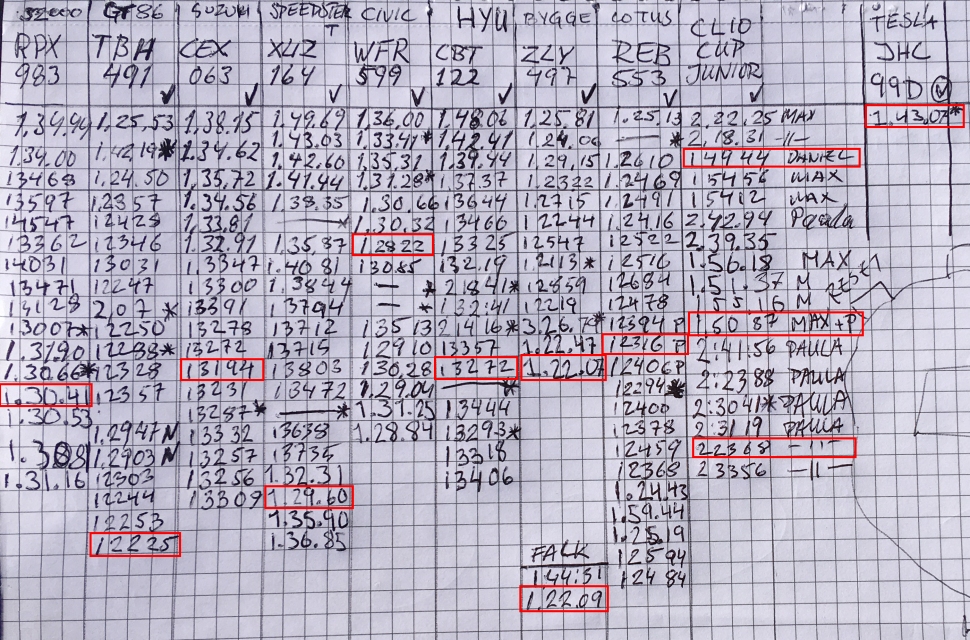 S2000
RPX
983
1,34.94
1,34.00
13468
13597
14547
13362
14031
13471
13128
13007*
1.3190
1.3066*
1.30.41
1.30.53
1.3081
1.31.16
GT86
TBH
491
1.25.53
1.42.19*
1.24.50
12357
12428
12346
13031
12247
2,07 *
12250
12288*
12328
12357
1.2947N
1.2903N
12303
12244
12253
12225
SUZUKI
CEX
063
1.38.15
1.34.62
1,35,72
1.34.56
1.33,81
1.32.91
1.3347
13300
13391
13278
13272
13194
13231
13287*
13332
13257
13256
13309
SPEEDSTER
T
XLZ
164
1.49.69
1.43.03
1.42.60
1.41.44
1.38.35
— *
1.35.87
1.40.81
1.3844
13794
13712
13715
13803
13472
— *
13638
13735
1.32.31
1.29.60
1.35.90
1.36.85
CIVIC
WFR
599
1.36.00
1.33.41*
1.35.31
1.31.28*
1.30.66
1.30.32
1.2822
130.85
— *
—
13513
12910
130.28
1.29.04
1.31.25
1.28.84
HYU
CBT
122
1.48.06
1.42.41
1.39.44
1.3737
13644
13466
13325
132.19
21841*
1:32:41
21416*
13357
13272
— *
13444
13293*
13318
13406
BYGGE
ZLY
497
1.25.81
1.24.00
1.29.15
1.2322
1.2715
12244
12547
1.2113*
12859
12219
3.26.78*
1.22.47
1.22.07
FALK
1.44:31
1.22.09
LOTUS
REB
553
1.25.13
— *
1.2610
1.2469
1.2491
1.2416
12522
12516
12684
12478
12394 P
12316 P
12406P
12294*
12400
12378
12459
12368
1.24.43
1.59.44
1.25.19
12594
12484
CLIO
CUP
JUNIOR
2.22.25 MAX
2,18.31 -11-
14944 DANIEL
15456 MAX
15412 MAX
2.42.94 Paula
2.39.35
1.56.18 MAX
1.51.37 M
15516 M REST
1.50 87 MAX+P
2:41.56 PAULA
2:2388 PAULA
2:3041* PAULA
2:3119 PAULA
22368 -11-
23356 -11-
TESLA
JHC
99D
1.43.07*